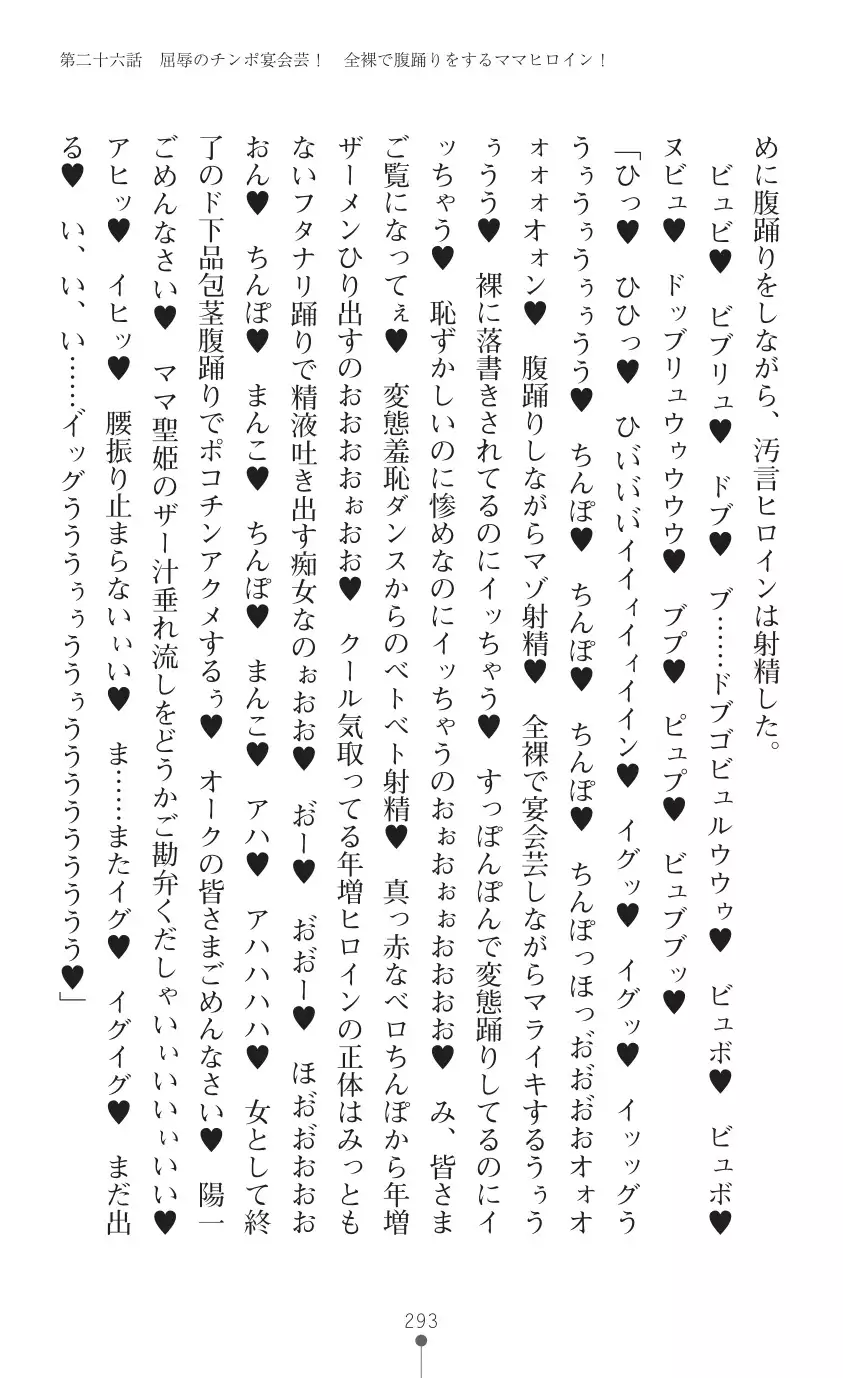 第二十六話　屈辱のチンポ宴会芸！　全裸で腹踊りをするママヒロイン！
めに腹踊りをしながら、汚言ヒロインは射精した。
　ビュビ♥　ビブリュ♥　ドブ♥　ブ……ドブゴビュルウウゥ♥　ビュボ♥　ビュボ♥
ヌビュ♥　ドッブリュウゥウウウ♥　ブプ♥　ピュプ♥　ビュブブッ♥
「ひっ♥　ひひっ♥　ひい゙い゙い゙イイィイィイイン♥　イグッ♥　イグッ♥　イッッグう
うぅうぅうぅぅうう♥　ちんぽ♥　ちんぽ♥　ちんぽ♥　ちんぽっほっお゙お゙お゙おオォオ
ォォォオォン♥　腹踊りしながらマゾ射精♥　全裸で宴会芸しながらマライキするうぅう
ぅうう♥　裸に落書きされてるのにイッちゃう♥　すっぽんぽんで変態踊りしてるのにイ
ッちゃう♥　恥ずかしいのに惨めなのにイッちゃうのおぉおぉぉおおおお♥　み、皆さま
ご覧になってぇ♥　変態羞恥ダンスからのベトベト射精♥　真っ赤なベロちんぽから年増
ザーメンひり出すのおおおおぉおお♥　クール気取ってる年増ヒロインの正体はみっとも
ないフタナリ踊りで精液吐き出す痴女なのぉおお♥　お゙ー♥　お゙お゙ー♥　ほお゙お゙おおお
おん♥　ちんぽ♥　まんこ♥　ちんぽ♥　まんこ♥　アハ♥　アハハハハ♥　女として終
了のド下品包茎腹踊りでポコチンアクメするぅ♥　オークの皆さまごめんなさい♥　陽一
ごめんなさい♥　ママ聖姫のザー汁垂れ流しをどうかご勘弁くだしゃいぃいいいぃいい♥
アヒッ♥　イヒッ♥　腰振り止まらないぃい♥　ま……またイグ♥　イグイグ♥　まだ出
る♥　い、い、い……イ゙ッグうううぅぅううぅうううううううううう♥」
293